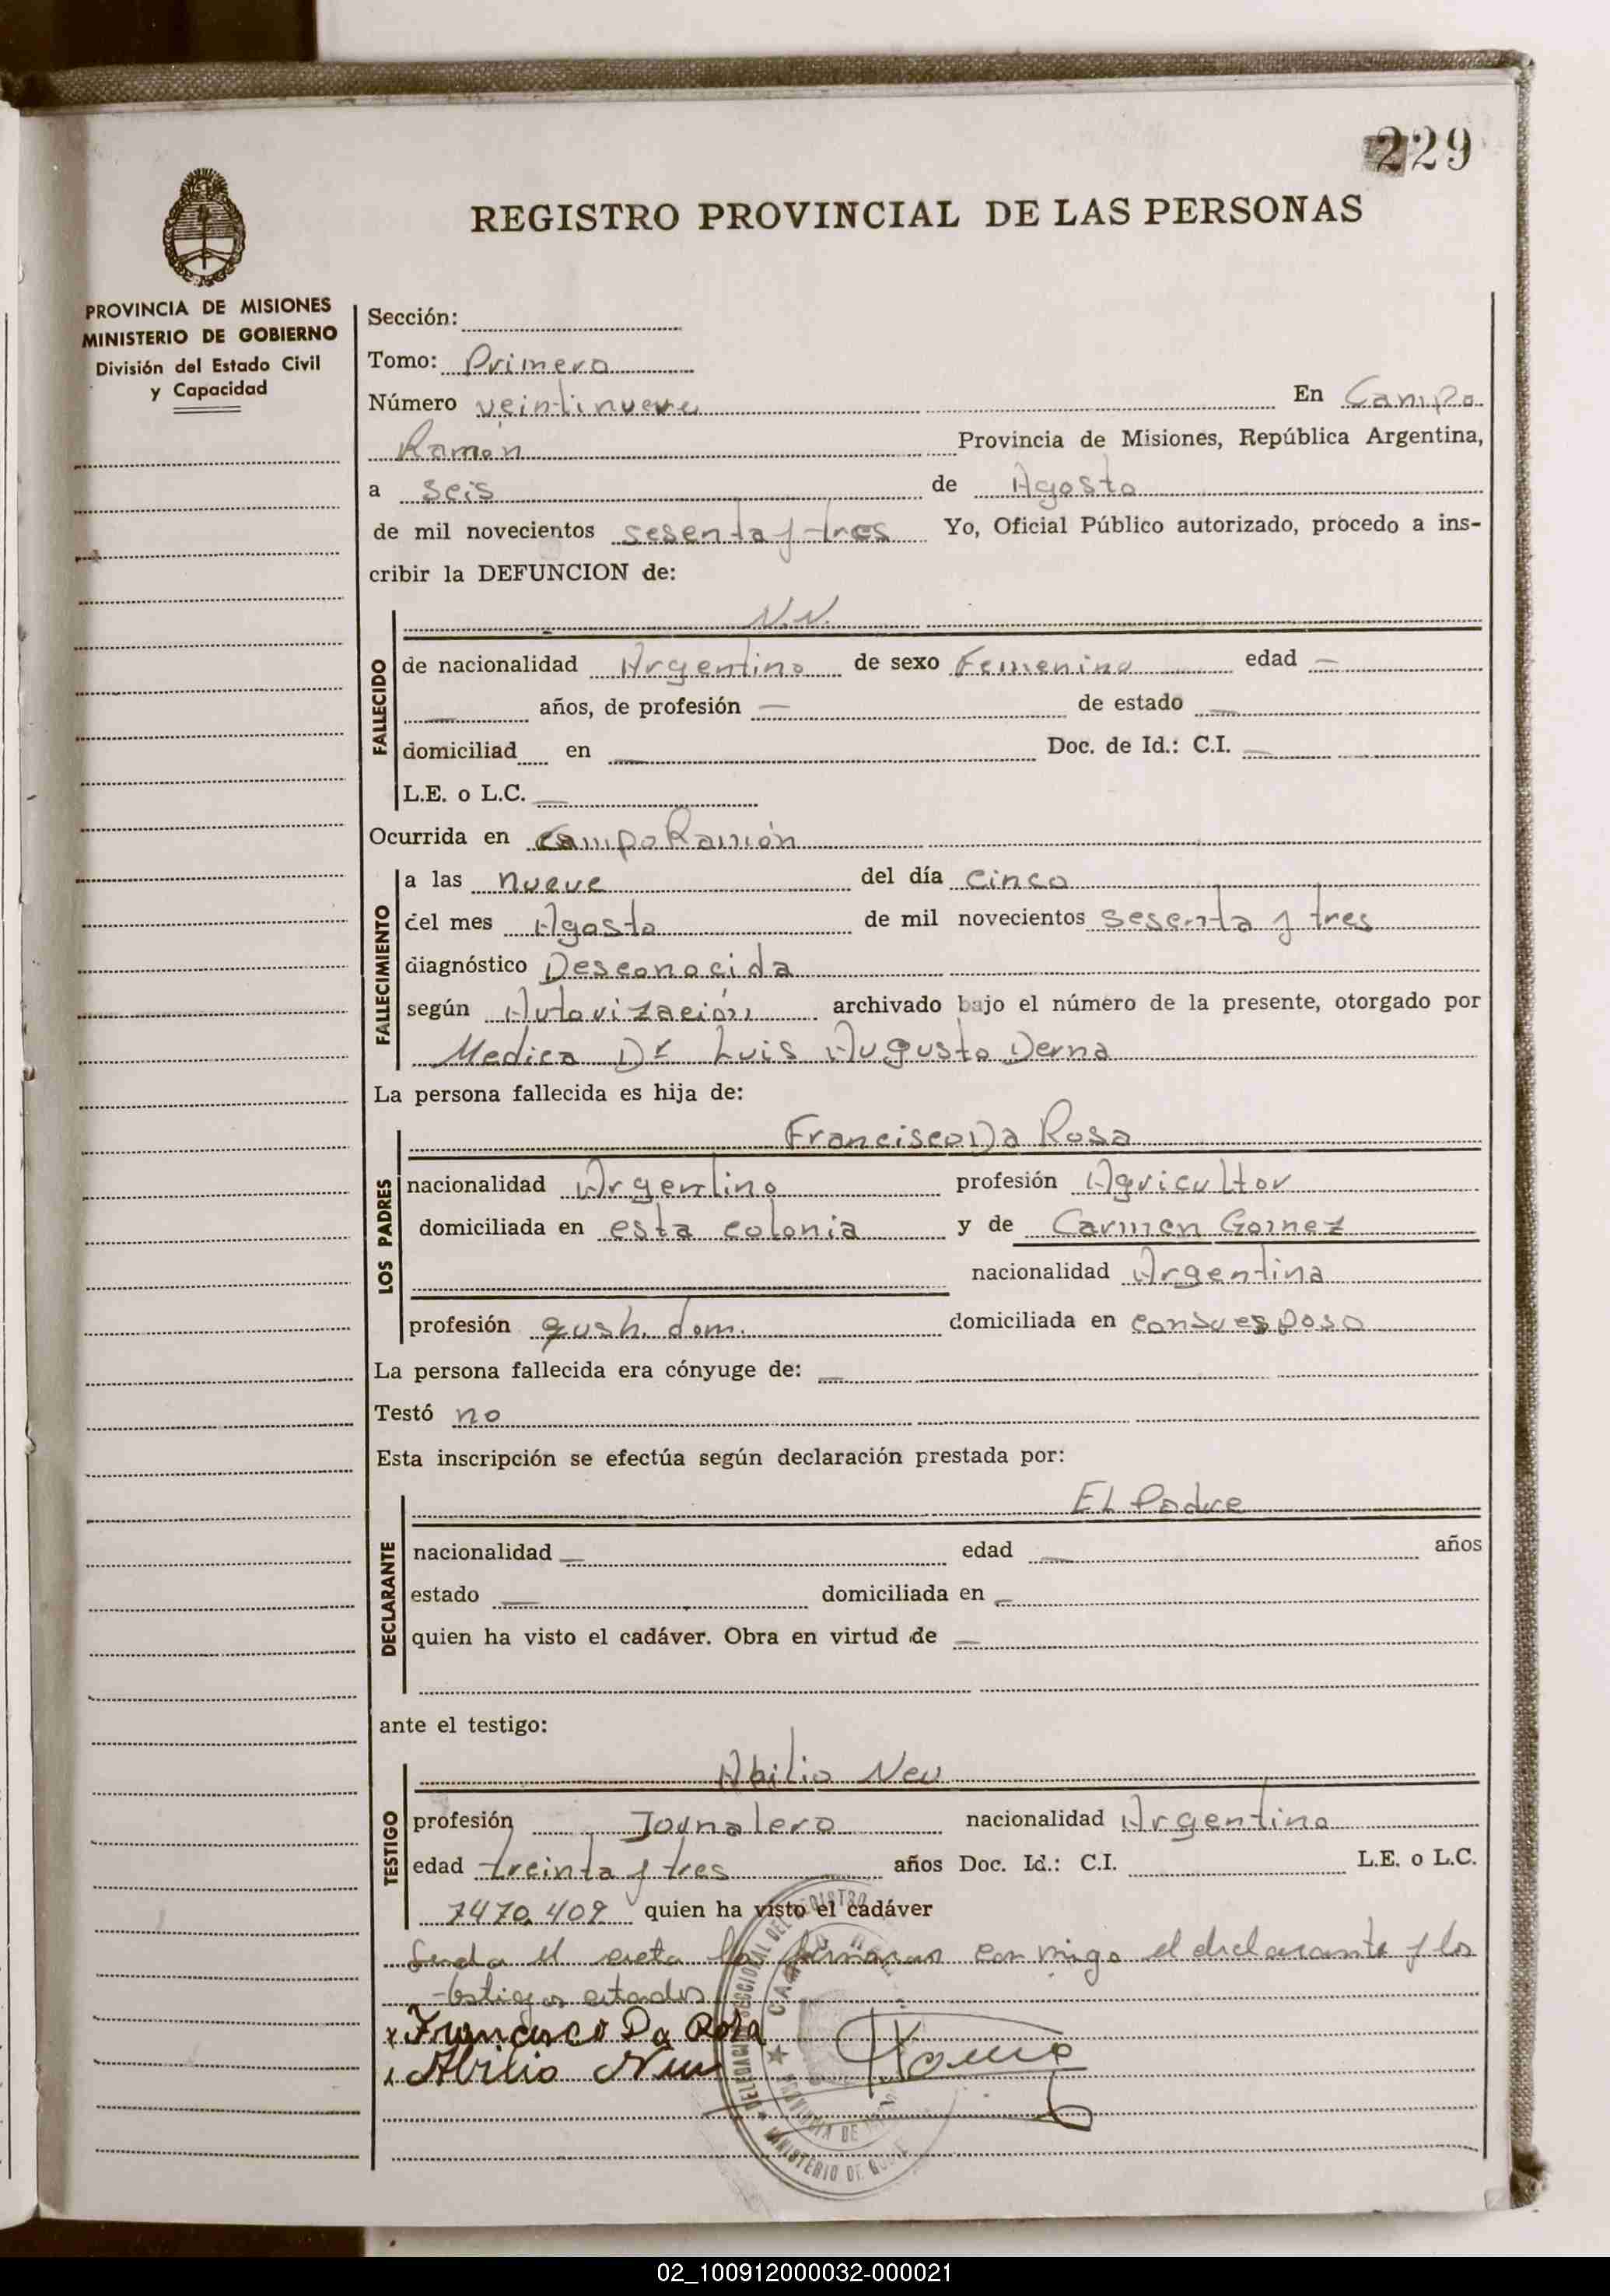 229
REGISTRO PROVINCIAL DE LAS PERSONAS
PROVINCIA DE MISIONES
MINISTERIO DE GOBIERNO
División del Estado Civil
y Capacidad
Sección:
Tomo: Primero
Número veintinueve En Campo
Ramon Provincia de Misiones, República Argentina,
a seis de Agosto
de mil novecientos sesenta y tres Yo, Oficial Público autorizado, procedo a ins-
cribir la DEFUNCION de:
N.N.
FALLECIDO
de nacionalidad Argentino de sexo Femenino edad —
— años, de profesión — de estado —
domiciliad en — Doc. de Id.: C.I. —
L.E. o L.C. —
Ocurrida en Campo Ramón
FALLECIMIENTO
a las nueve del día cinco
del mes Agosto de mil novecientos sesenta y tres
diagnóstico Desconocida
según Autorización archivado bajo el número de la presente, otorgado por
Medica Dr Luis Augusto Derna
La persona fallecida es hija de:
LOS PADRES
Francisco Da Rosa
nacionalidad Argentino profesión Agricultor
domiciliada en esta colonia y de Carmen Gomez
nacionalidad Argentina
profesión qush. dom. domiciliada en con su esposo
La persona fallecida era cónyuge de: —
Testó no
Esta inscripción se efectúa según declaración prestada por:
DECLARANTE
EL Padre
nacionalidad — edad — años
estado — domiciliada en —
quien ha visto el cadáver. Obra en virtud de —
ante el testigo:
TESTIGO
Abilio Neu
profesión Jornalero nacionalidad Argentino
edad treinta y tres años Doc. Id.: C.I. L.E. o L.C.
7470.409 quien ha visto el cadáver
el declarante y los
testigos citados
Francisco Da Rosa
Abilio Neu
02_100912000032-000021